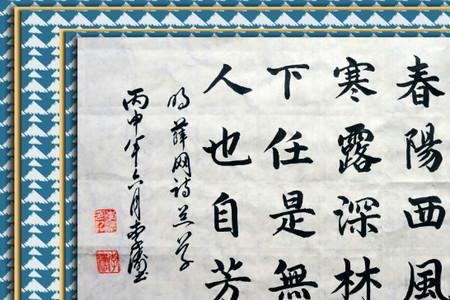 春陽西風
寒露深林
下任是無
人也自芳
明薛网詩兰草
丙申年六月